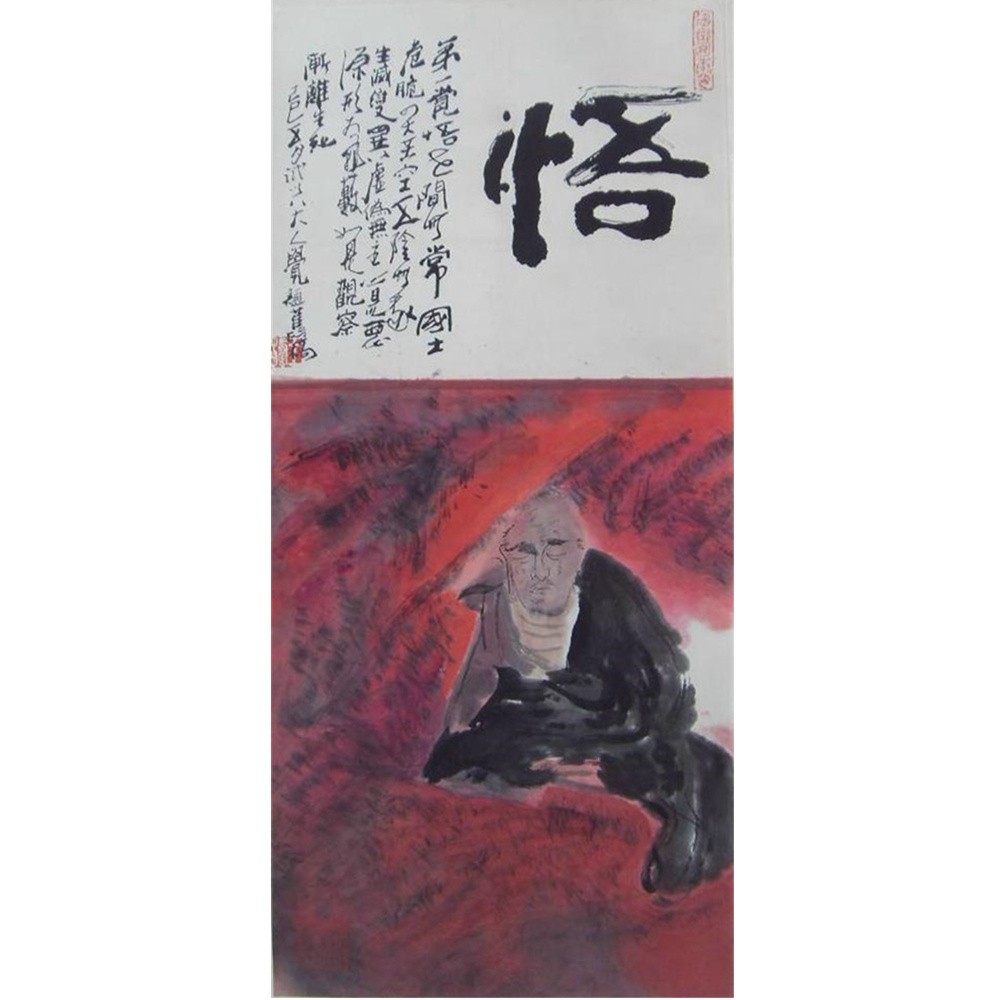 悟
第一覺悟世間無常國土
危脆四大苦空五陰無我
生滅變異虛偽無主心是惡
源形為罪藪如是觀察
漸離生死
己巳五月 八大人覺題舊稿